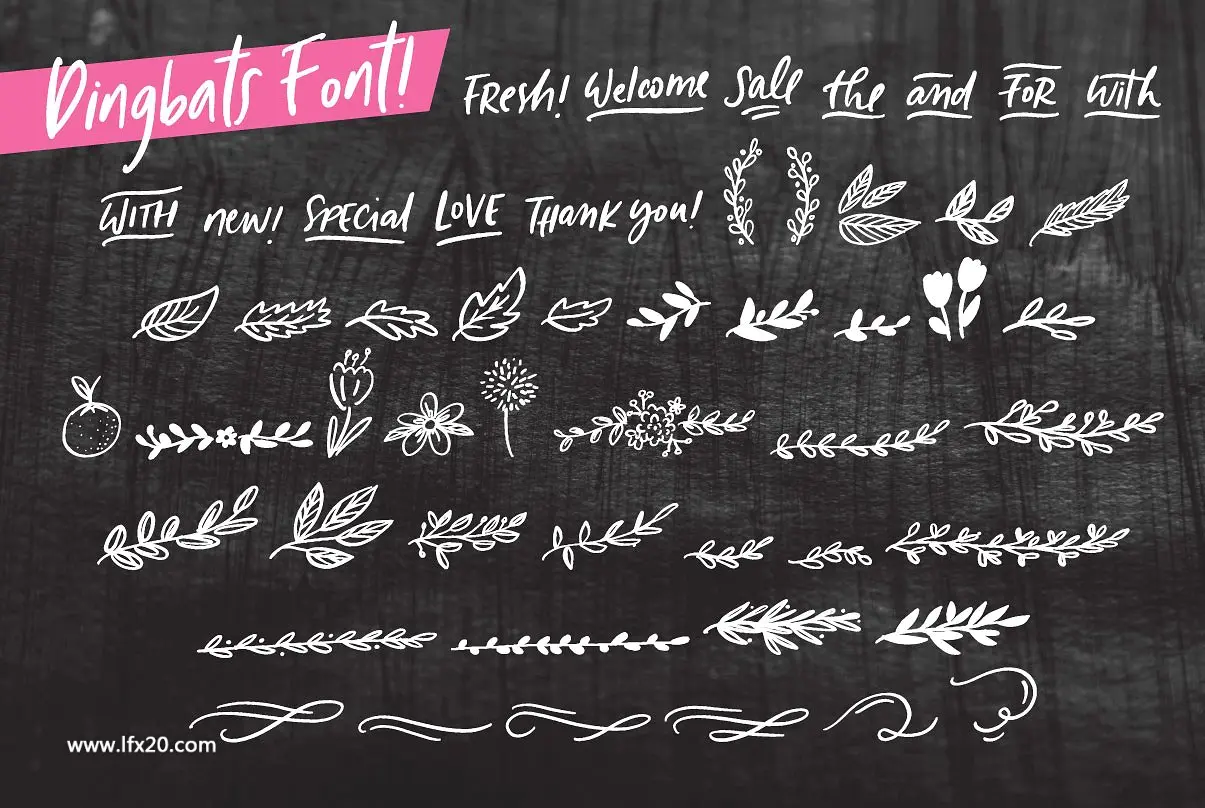 Dingbats Font!
FResh! Welcome Sale the and FoR with
WITH new! SPecial LoVE Thank you!
www.lfx20.com